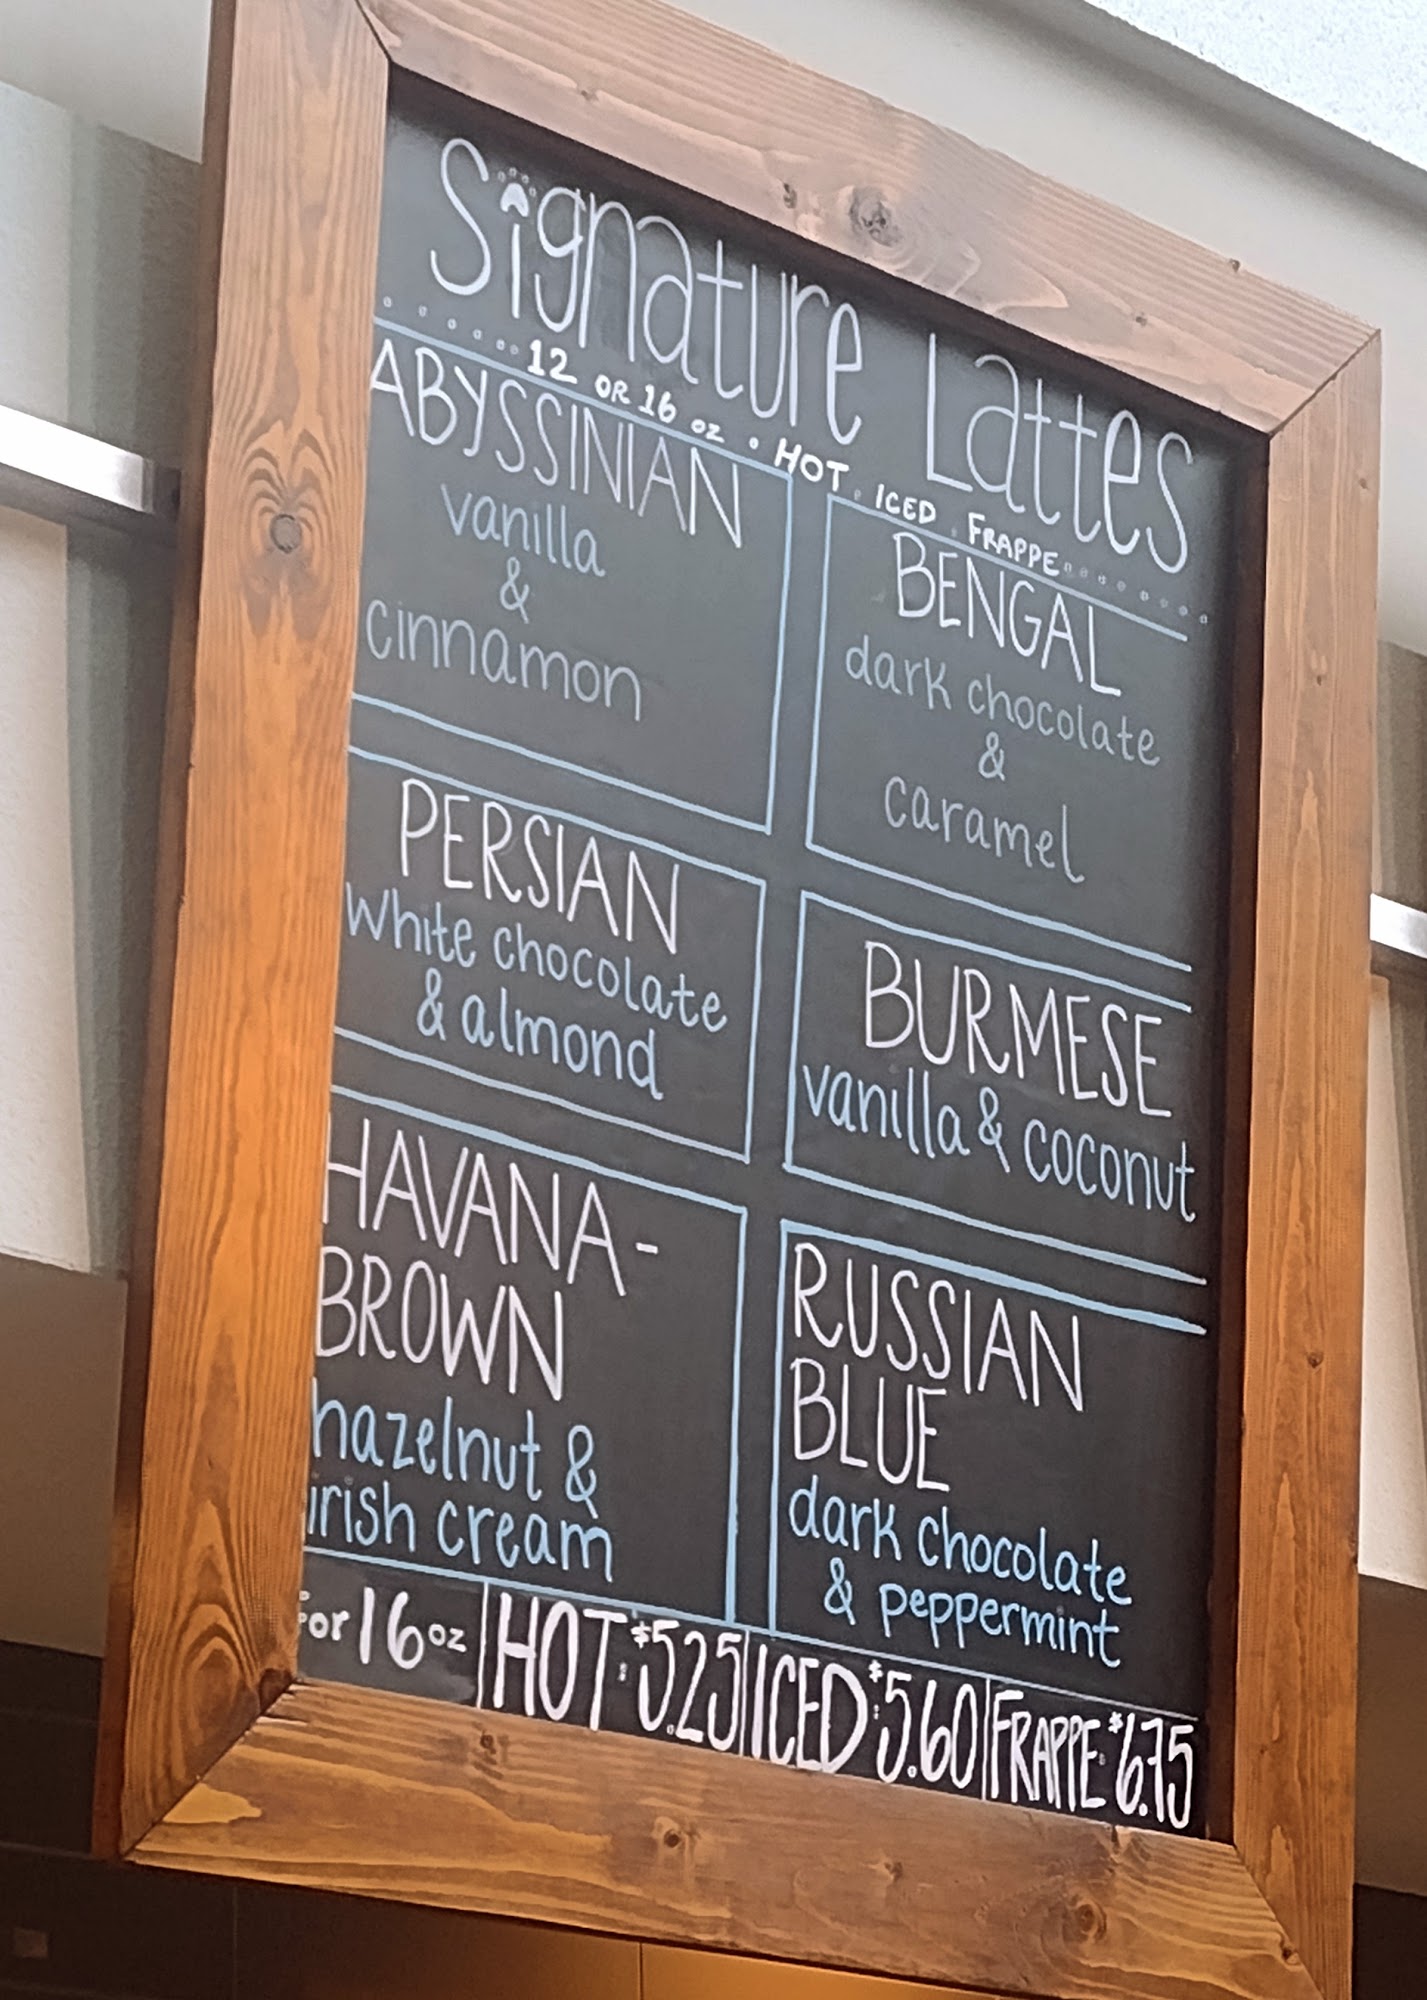 Signature Lattes
12 OR 16 oz • HOT • ICED • FRAPPE
ABYSSINIAN
vanilla
&
cinnamon
BENGAL
dark chocolate
&
caramel
PERSIAN
white chocolate
& almond
BURMESE
vanilla & coconut
HAVANA-
BROWN
hazelnut &
irish cream
RUSSIAN
BLUE
dark chocolate
& peppermint
For 16 oz | HOT: $5.25 | ICED: $5.60 | FRAPPE: $6.75